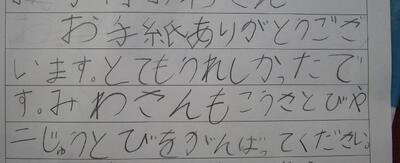 お手紙ありがとうござ
います。とてもうれしかったで
す。みわさんもこうさとびや
二じゅうとびをがんばってください。